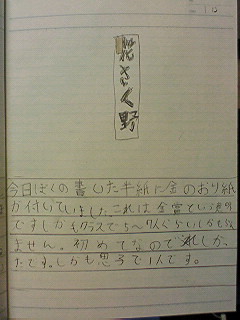 花さく野
今日ぼくの書いた半紙に金のおり紙
が付いていました。これは金賞という意味
ですしかもクラスで5~7人ぐらいしかもらえ
ません。初めてなのでうれしか
たです。しかも男子で1人です。